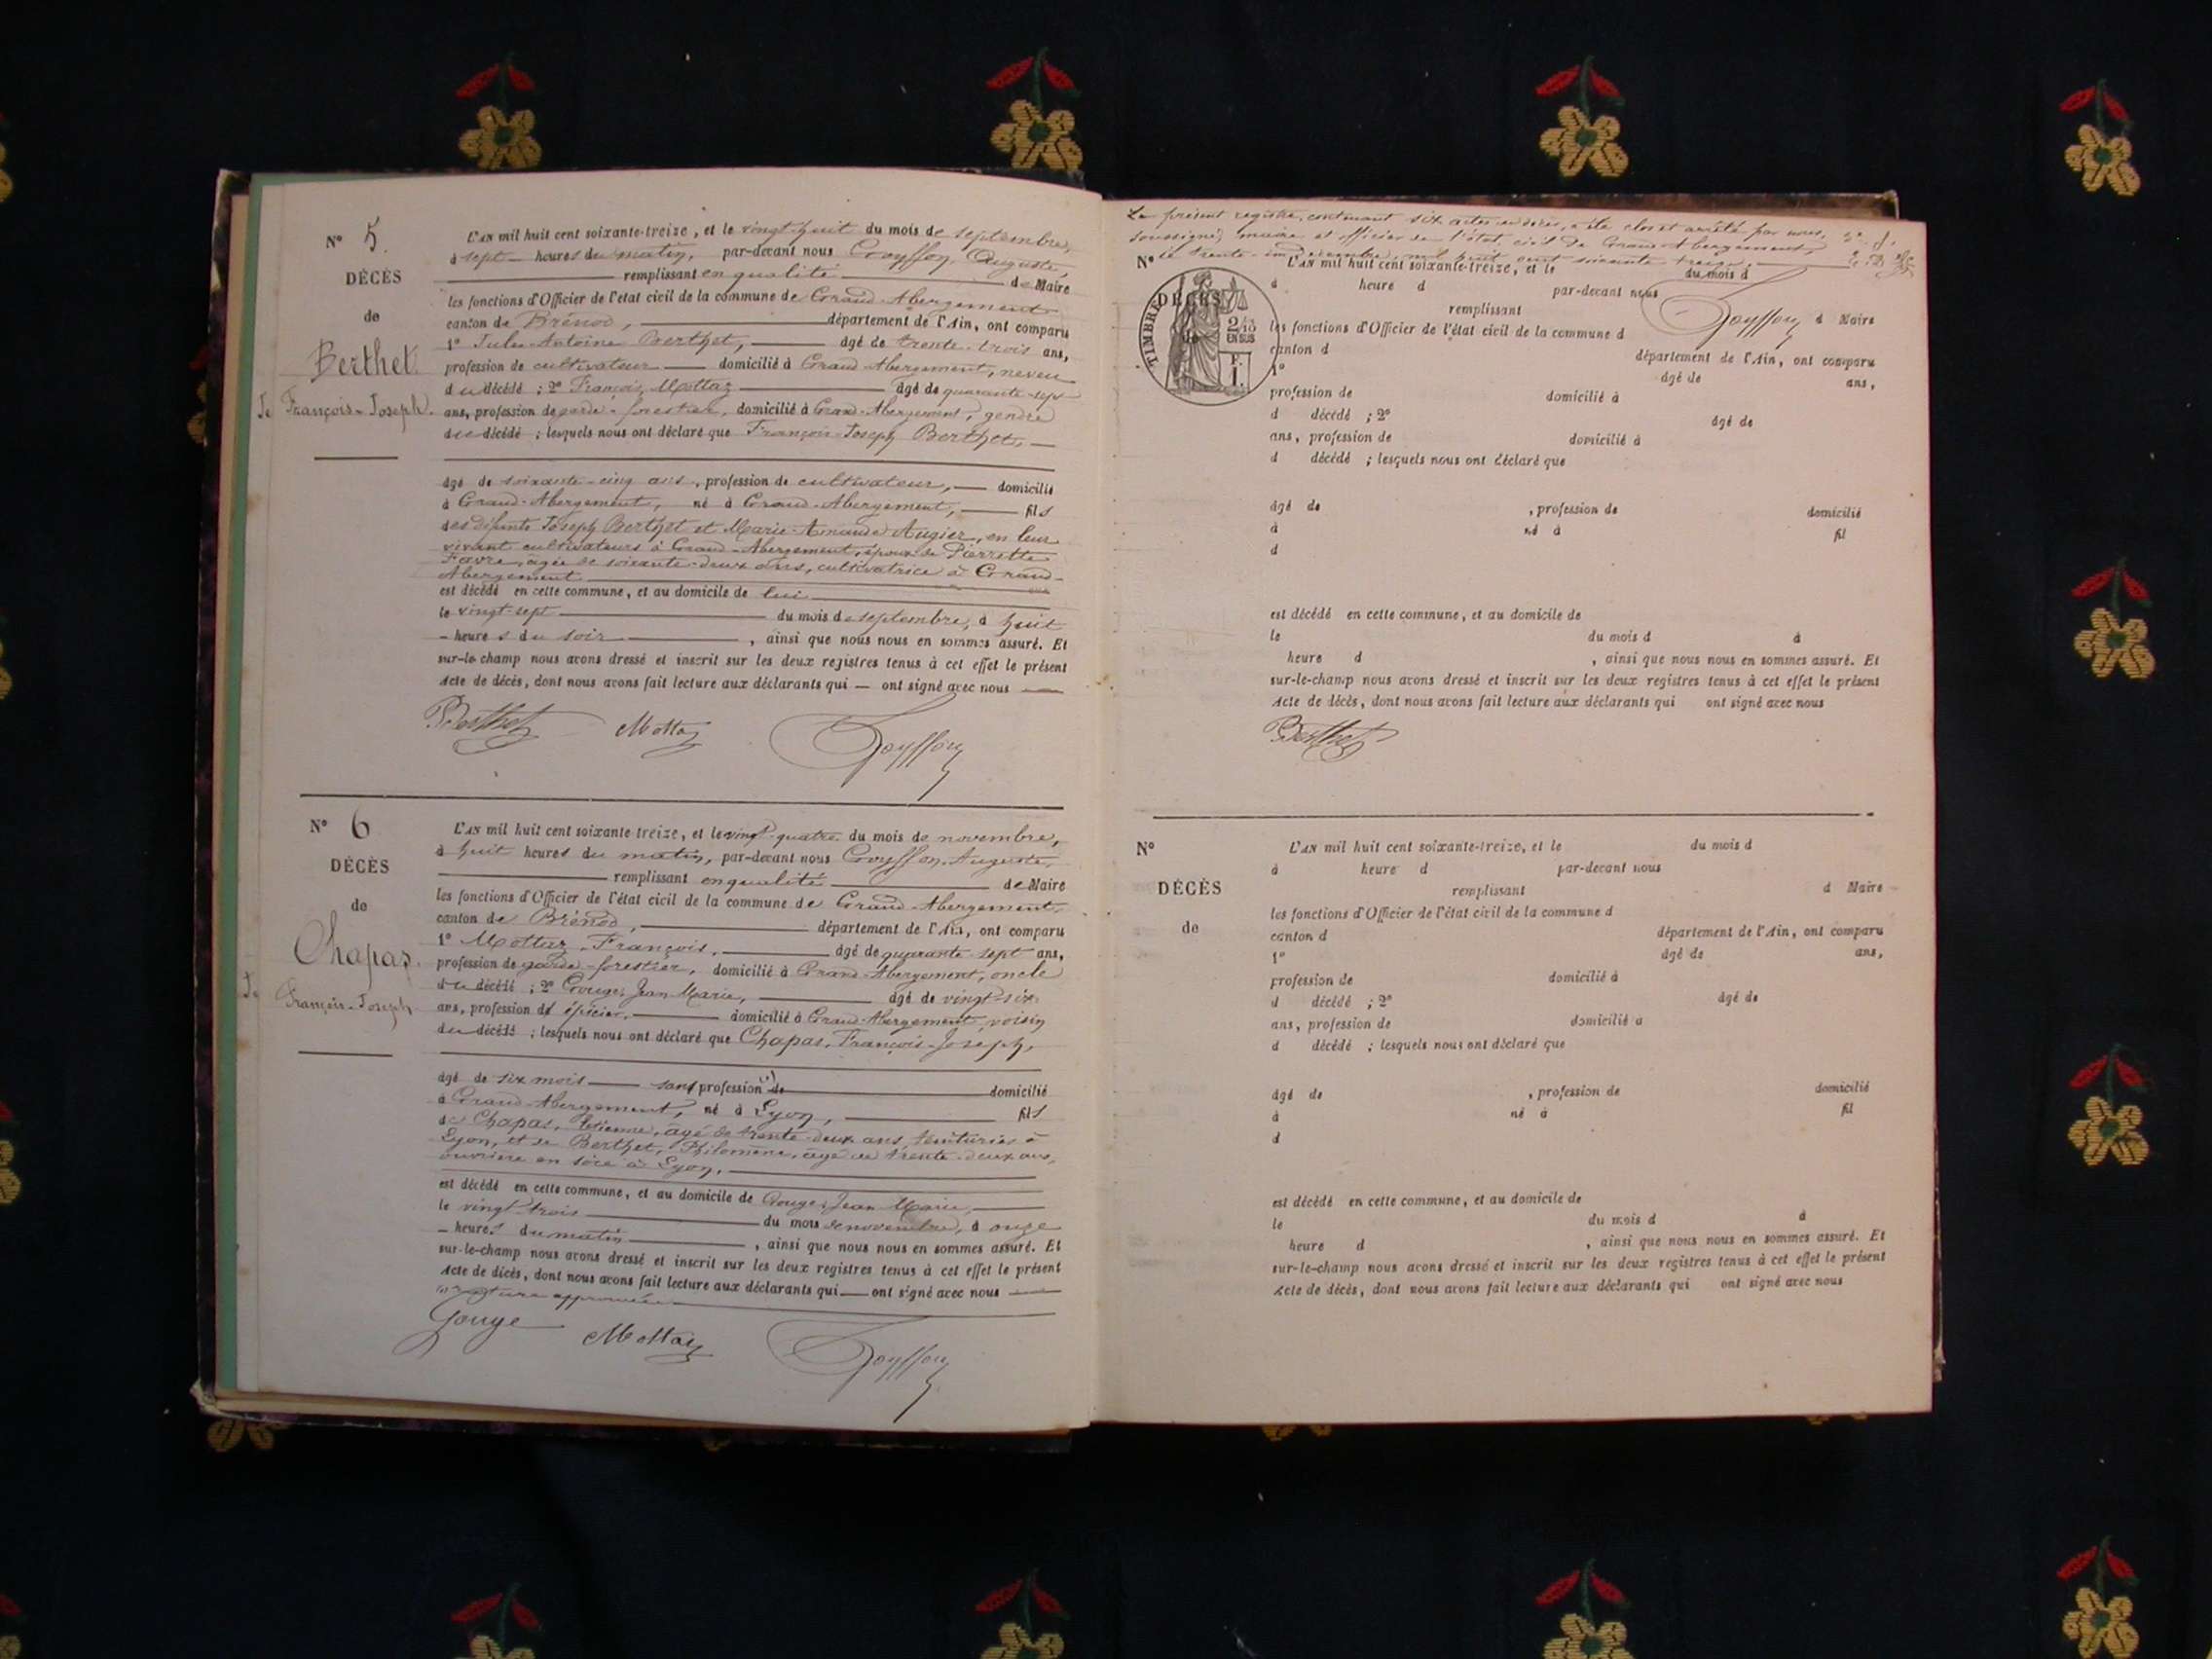 N° 5.
DÉCÈS
de
Berthet
François-Joseph.
L'AN mil huit cent soixante-treize, et le vingt-huit du mois de septembre,
à sept heures du matin, par-devant nous Goyffon, Auguste,
remplissant en qualité de Maire
les fonctions d'Officier de l'état civil de la commune de Grand-Abergement
canton de Brénod, département de l'Ain, ont comparu
1° Jules-Antoine Berthet, âgé de trente-trois ans,
profession de cultivateur domicilié à Grand-Abergement, neveu
du décédé ; 2° François Mottaz âgé de quarante-sept
ans, profession de garde-forestier, domicilié à Grand-Abergement, gendre
du décédé ; lesquels nous ont déclaré que François-Joseph Berthet,
âgé de soixante-cinq ans, profession de cultivateur, domicilié
à Grand-Abergement, né à Grand-Abergement, fils
des défunts Joseph Berthet et Marie- Augier, en leur
vivant cultivateurs à Grand-Abergement, époux de Pierrette
Favre, âgée de soixante-deux ans, cultivatrice à Grand-
Abergement
est décédé en cette commune, et au domicile de lui
le vingt-sept du mois de septembre, à huit
heures du soir, ainsi que nous nous en sommes assuré. Et
sur-le-champ nous avons dressé et inscrit sur les deux registres tenus à cet effet le présent
Acte de décès, dont nous avons fait lecture aux déclarants qui — ont signé avec nous
Berthet Mottaz Goyffon
N° 6
DÉCÈS
de
Chapas.
François-Joseph
L'AN mil huit cent soixante-treize, et le vingt-quatre du mois de novembre,
à huit heures du matin, par-devant nous Goyffon, Auguste,
remplissant en qualité de Maire
les fonctions d'Officier de l'état civil de la commune de Grand-Abergement,
canton de Brénod, département de l'Ain, ont comparu
1° Mottaz, François, âgé de quarante-sept ans,
profession de garde-forestier, domicilié à Grand-Abergement, oncle
du décédé ; 2° Gouge, Jean-Marie, âgé de vingt-six
ans, profession d'épicier, domicilié à Grand-Abergement, voisin
du décédé ; lesquels nous ont déclaré que Chapas, François-Joseph,
âgé de six mois sans profession de domicilié
à Grand-Abergement, né à Lyon, fils
de Chapas, Etienne, âgé de trente-deux ans, teinturier à
Lyon, et de Berthet, Philomène, âgée de trente-deux ans,
ouvrière en soie à Lyon,
est décédé en cette commune, et au domicile de Gouge, Jean-Marie,
le vingt-trois du mois de novembre, à onze
heures du matin, ainsi que nous nous en sommes assuré. Et
sur-le-champ nous avons dressé et inscrit sur les deux registres tenus à cet effet le présent
Acte de décès, dont nous avons fait lecture aux déclarants qui — ont signé avec nous
rature approuvée
Gouge Mottaz Goyffon
Le présent registre, contenant six actes de décès, a été clos et arrêté par nous,
soussigné, maire et officier de l'état civil de Grand-Abergement,
le trente-un décembre, mil huit cent soixante-treize.
Goyffon
TIMBRE
2/10
EN SUS
F.
1.
N°
DÉCÈS
de
L'AN mil huit cent soixante-treize, et le du mois d
à heure d par-devant nous
remplissant d Maire
les fonctions d'Officier de l'état civil de la commune d
canton d département de l'Ain, ont comparu
1° âgé de ans,
profession de domicilié à
d décédé ; 2° âgé de
ans, profession de domicilié à
d décédé ; lesquels nous ont déclaré que
âgé de , profession de domicilié
à né à fil
d
est décédé en cette commune, et au domicile de
le du mois d à
heure d , ainsi que nous nous en sommes assuré. Et
sur-le-champ nous avons dressé et inscrit sur les deux registres tenus à cet effet le présent
Acte de décès, dont nous avons fait lecture aux déclarants qui ont signé avec nous
Berthet
N°
DÉCÈS
de
L'AN mil huit cent soixante-treize, et le du mois d
à heure d par-devant nous
remplissant d Maire
les fonctions d'Officier de l'état civil de la commune d
canton d département de l'Ain, ont comparu
1° âgé de ans,
profession de domicilié à
d décédé ; 2° âgé de
ans, profession de domicilié à
d décédé ; lesquels nous ont déclaré que
âgé de , profession de domicilié
à né à fil
d
est décédé en cette commune, et au domicile de
le du mois d à
heure d , ainsi que nous nous en sommes assuré. Et
sur-le-champ nous avons dressé et inscrit sur les deux registres tenus à cet effet le présent
Acte de décès, dont nous avons fait lecture aux déclarants qui ont signé avec nous